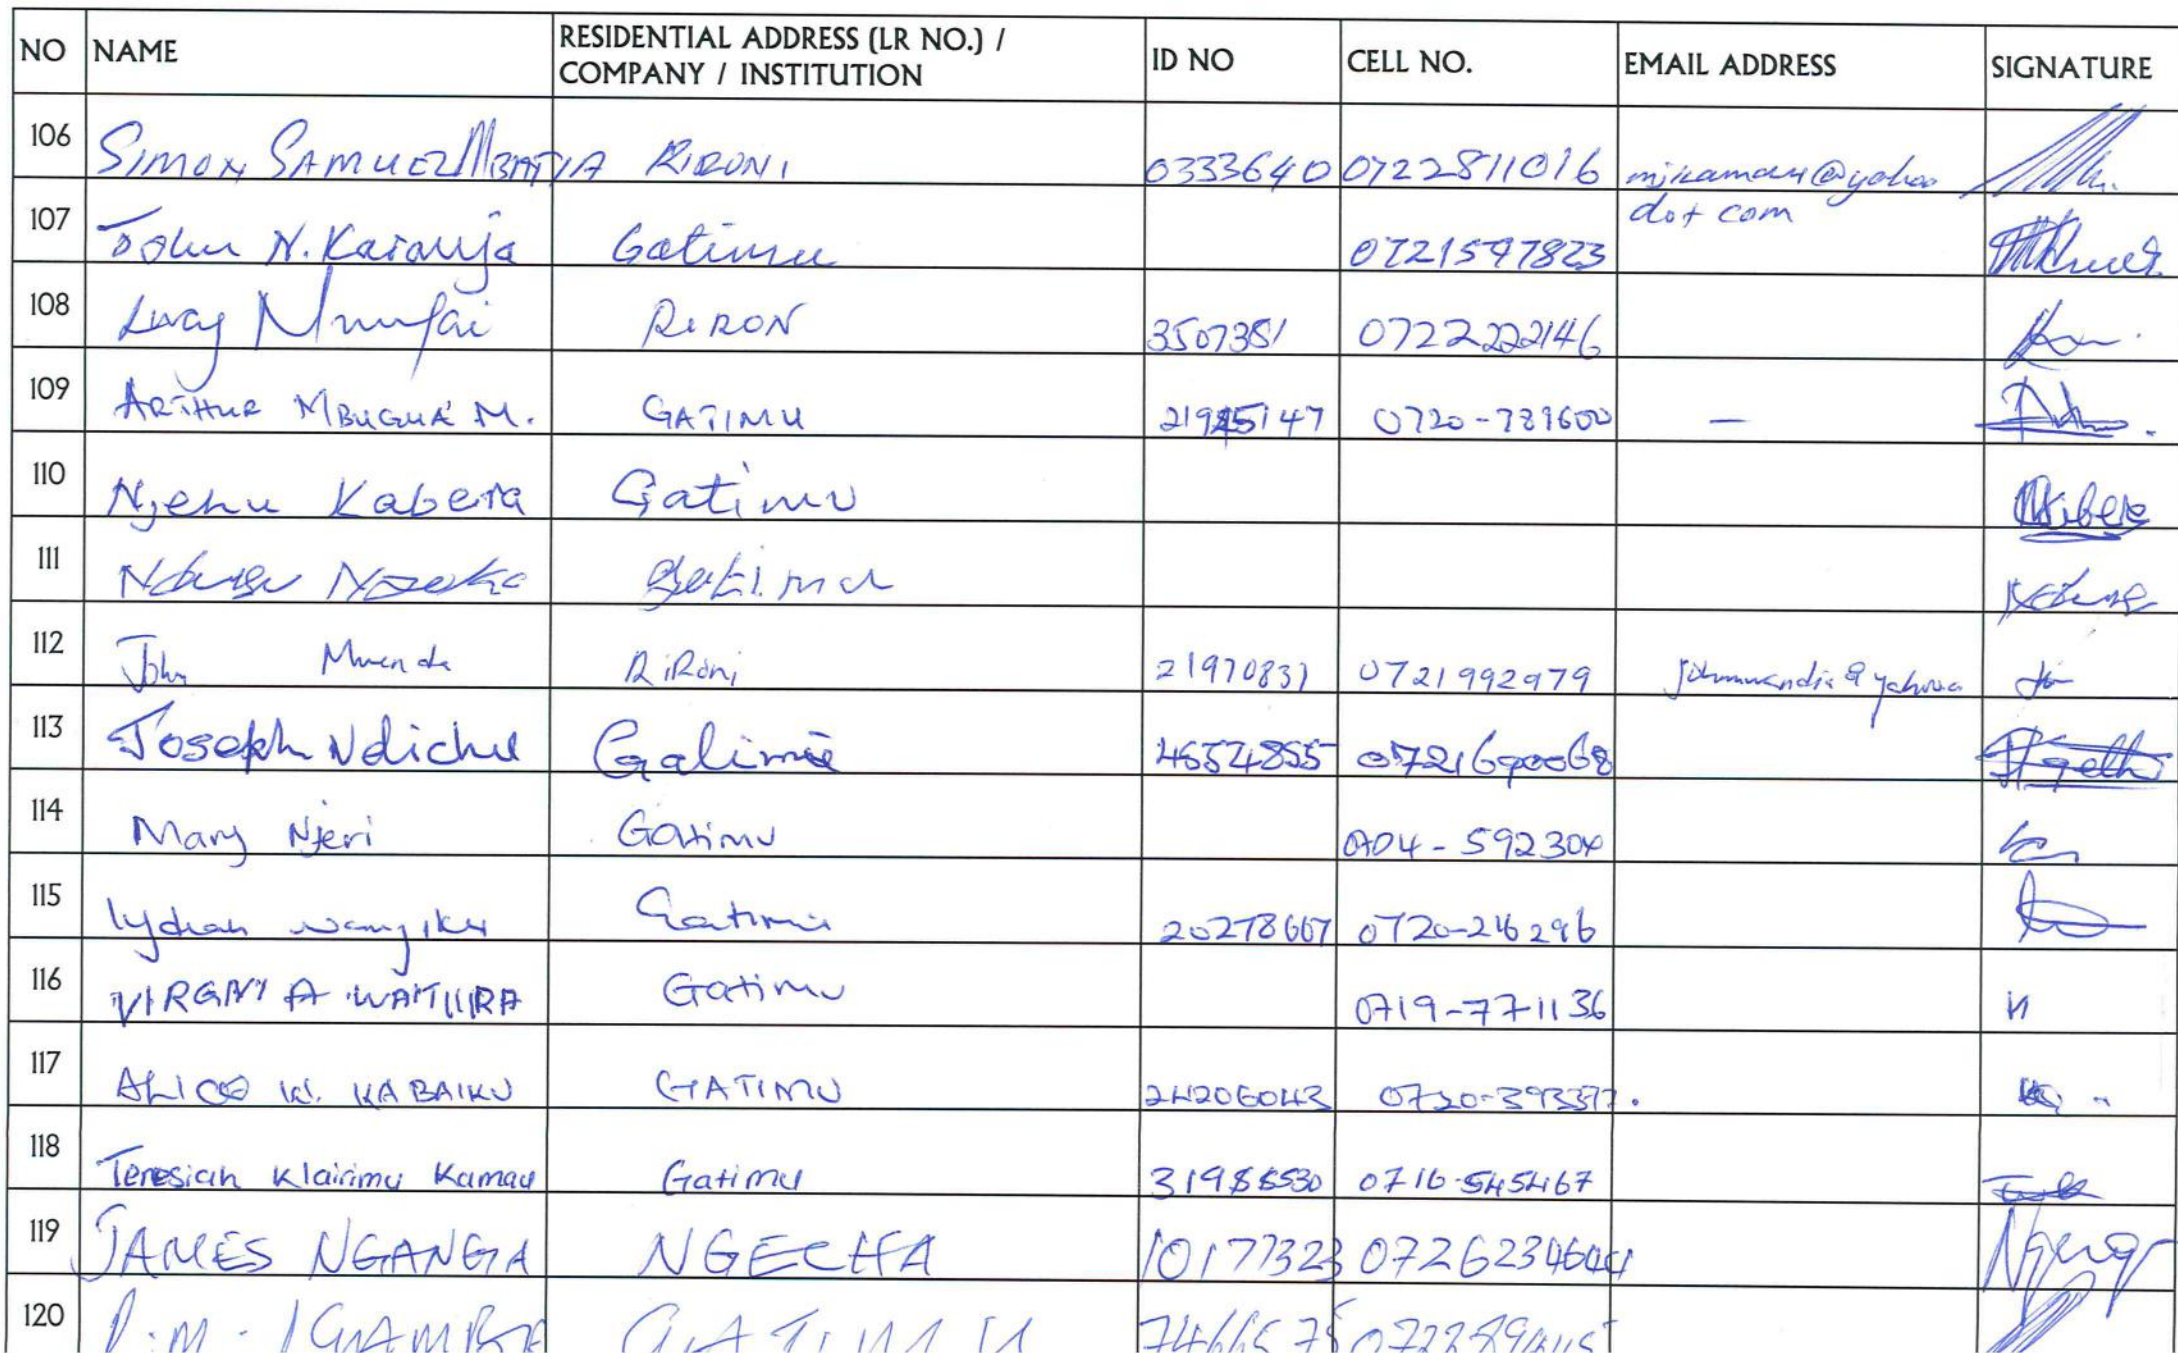 NO NAME RESIDENTIAL ADDRESS (LR NO.) / COMPANY / INSTITUTION ID NO CELL NO. EMAIL ADDRESS SIGNATURE
106 SIMON SAMUEL MBATIA RIRONI 0333640 0722811016 mjkamau@yahoo dot com
107 John N. Karanja Gatimu 0721597823
108 RIRON 3507381 0722222146
109 ARTHUR MBUGUA M. GATIMU 0720-789600 —
110 Njehu Kabera Gatimu
111 Gatimu
112 John RiRoni 21970831 0721992979
113 Joseph Ndichu Gatimu 0721690068
114 Mary Njeri Gatimu 0704-592304
115 Lydiah Wanjiku Gatimu 20278667 0720-216296
116 VIRGNIA Gatimu 0719-771136
117 ALICE W. KABAIKU GATIMU 24206043
118 Teresiah Wairimu Kamau Gatimu 0716-545467
119 JAMES NGANGA NGECHA 10177323
120 GATIMU